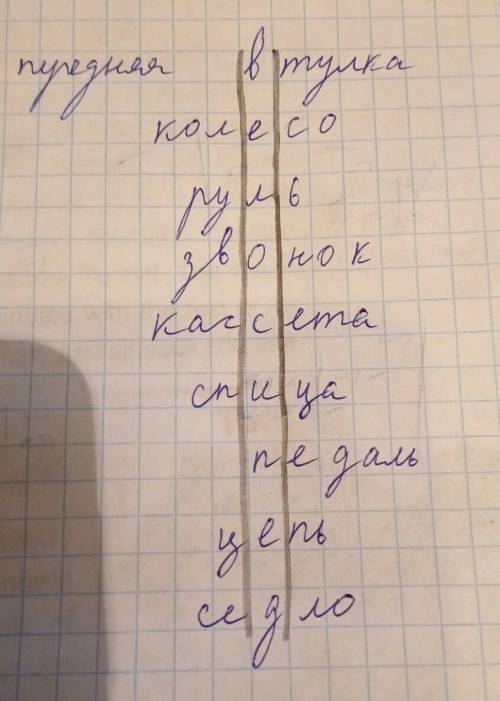 передняя втулка
колесо
руль
звонок
кассета
спица
педаль
цепь
седло